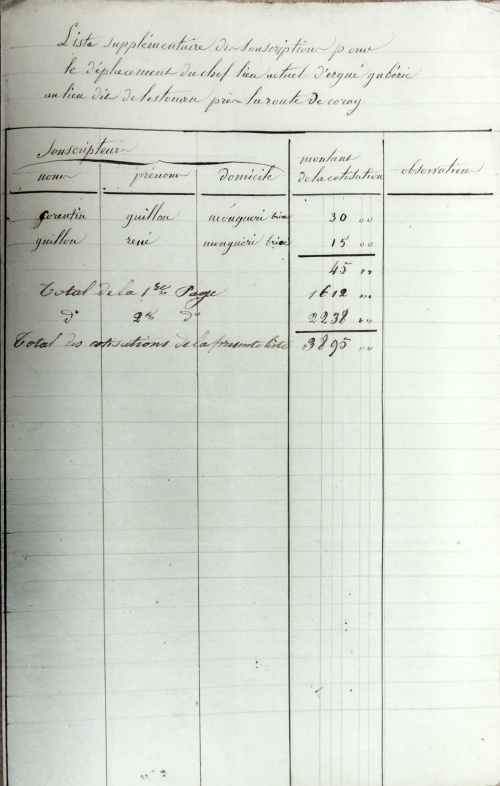 Liste supplémentaire des souscriptions pour
le déplacement du chef lieu actuel d'ergué gabéric
au lieu dit de lestonan près la route de coray
Souscripteurs
noms prénoms domicile montant de la cotisation observation
corentin guillou monguéri briec 30 00
guillou rené monguéri briec 15 00
45 "
Total de la 1re Page 1612 "
do 2e do 2238 "
Total des cotisations de la presente liste 3895 "